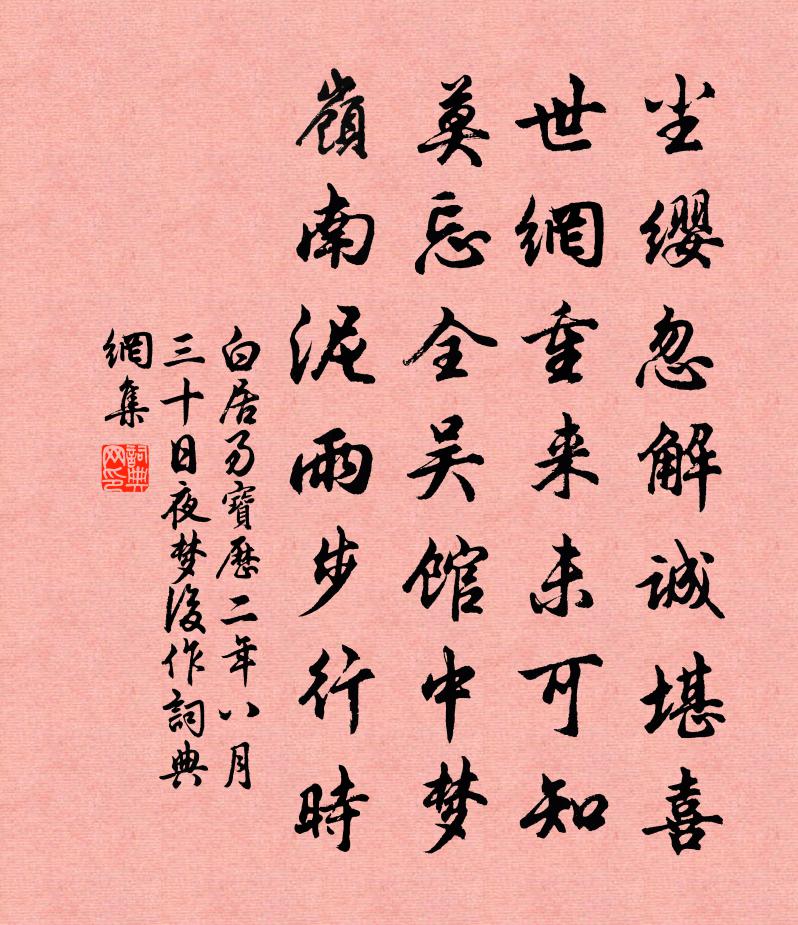 尘缨忽解诚堪喜
世網重来未可知
莫忘全吴馆中梦
嶺南泥雨步行時
白居易寶歷二年八月
三十日夜梦後作詞典
網集
詞典
网印